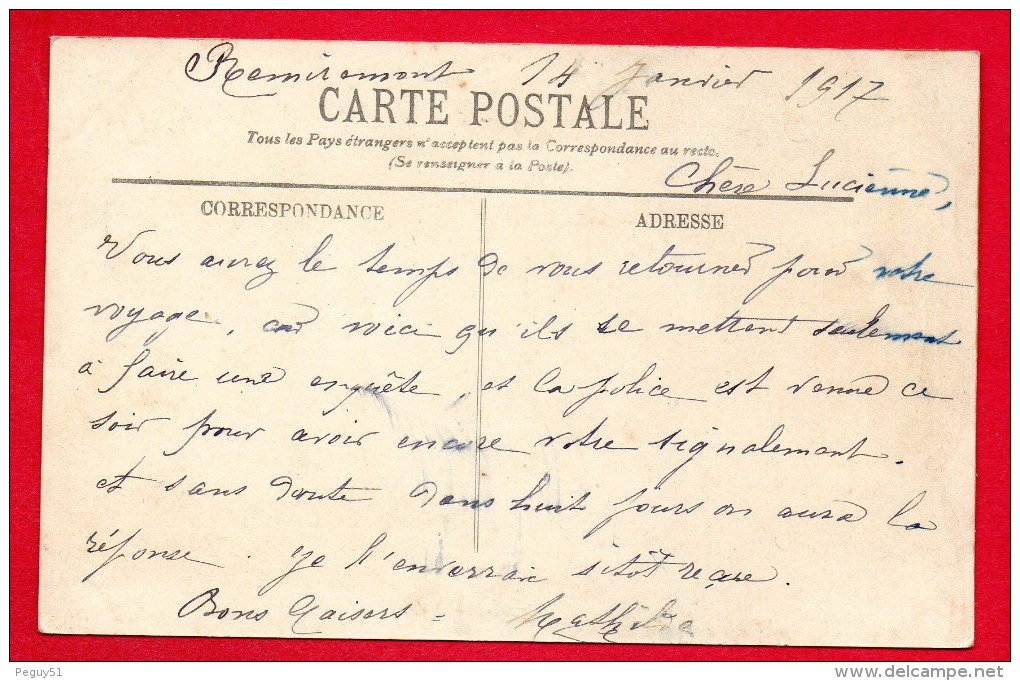 Remiremont 14 Janvier 1917
CARTE POSTALE
Tous les Pays étrangers n'acceptent pas la Correspondance au recto.
(Se renseigner à la Poste).
Chère Lucienne,
CORRESPONDANCE
ADRESSE
Vous aurez le temps de vous retourner pour votre
voyage, car voici qu'ils se mettent seulement
à faire une enquête, et la police est venue ce
soir pour avoir encore votre signalement.
et sans doute dans huit jours on aura la
réponse. je l'enverrai sitôt reçue.
Bons Baisers = Mathilde
Peguy51
www.delcampe.net